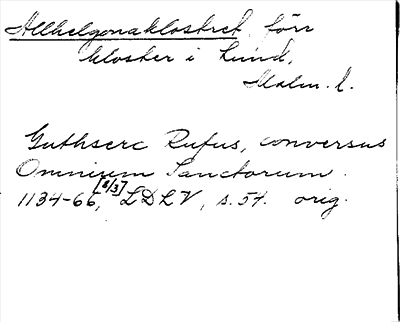 Allhelgonaklostret, förr
kloster i Lund,
Malm. l.
Guthserc Rufus, conversus
Omnium Sanctorum.
1134-66, [8/3] LDLV, s. 54. orig.